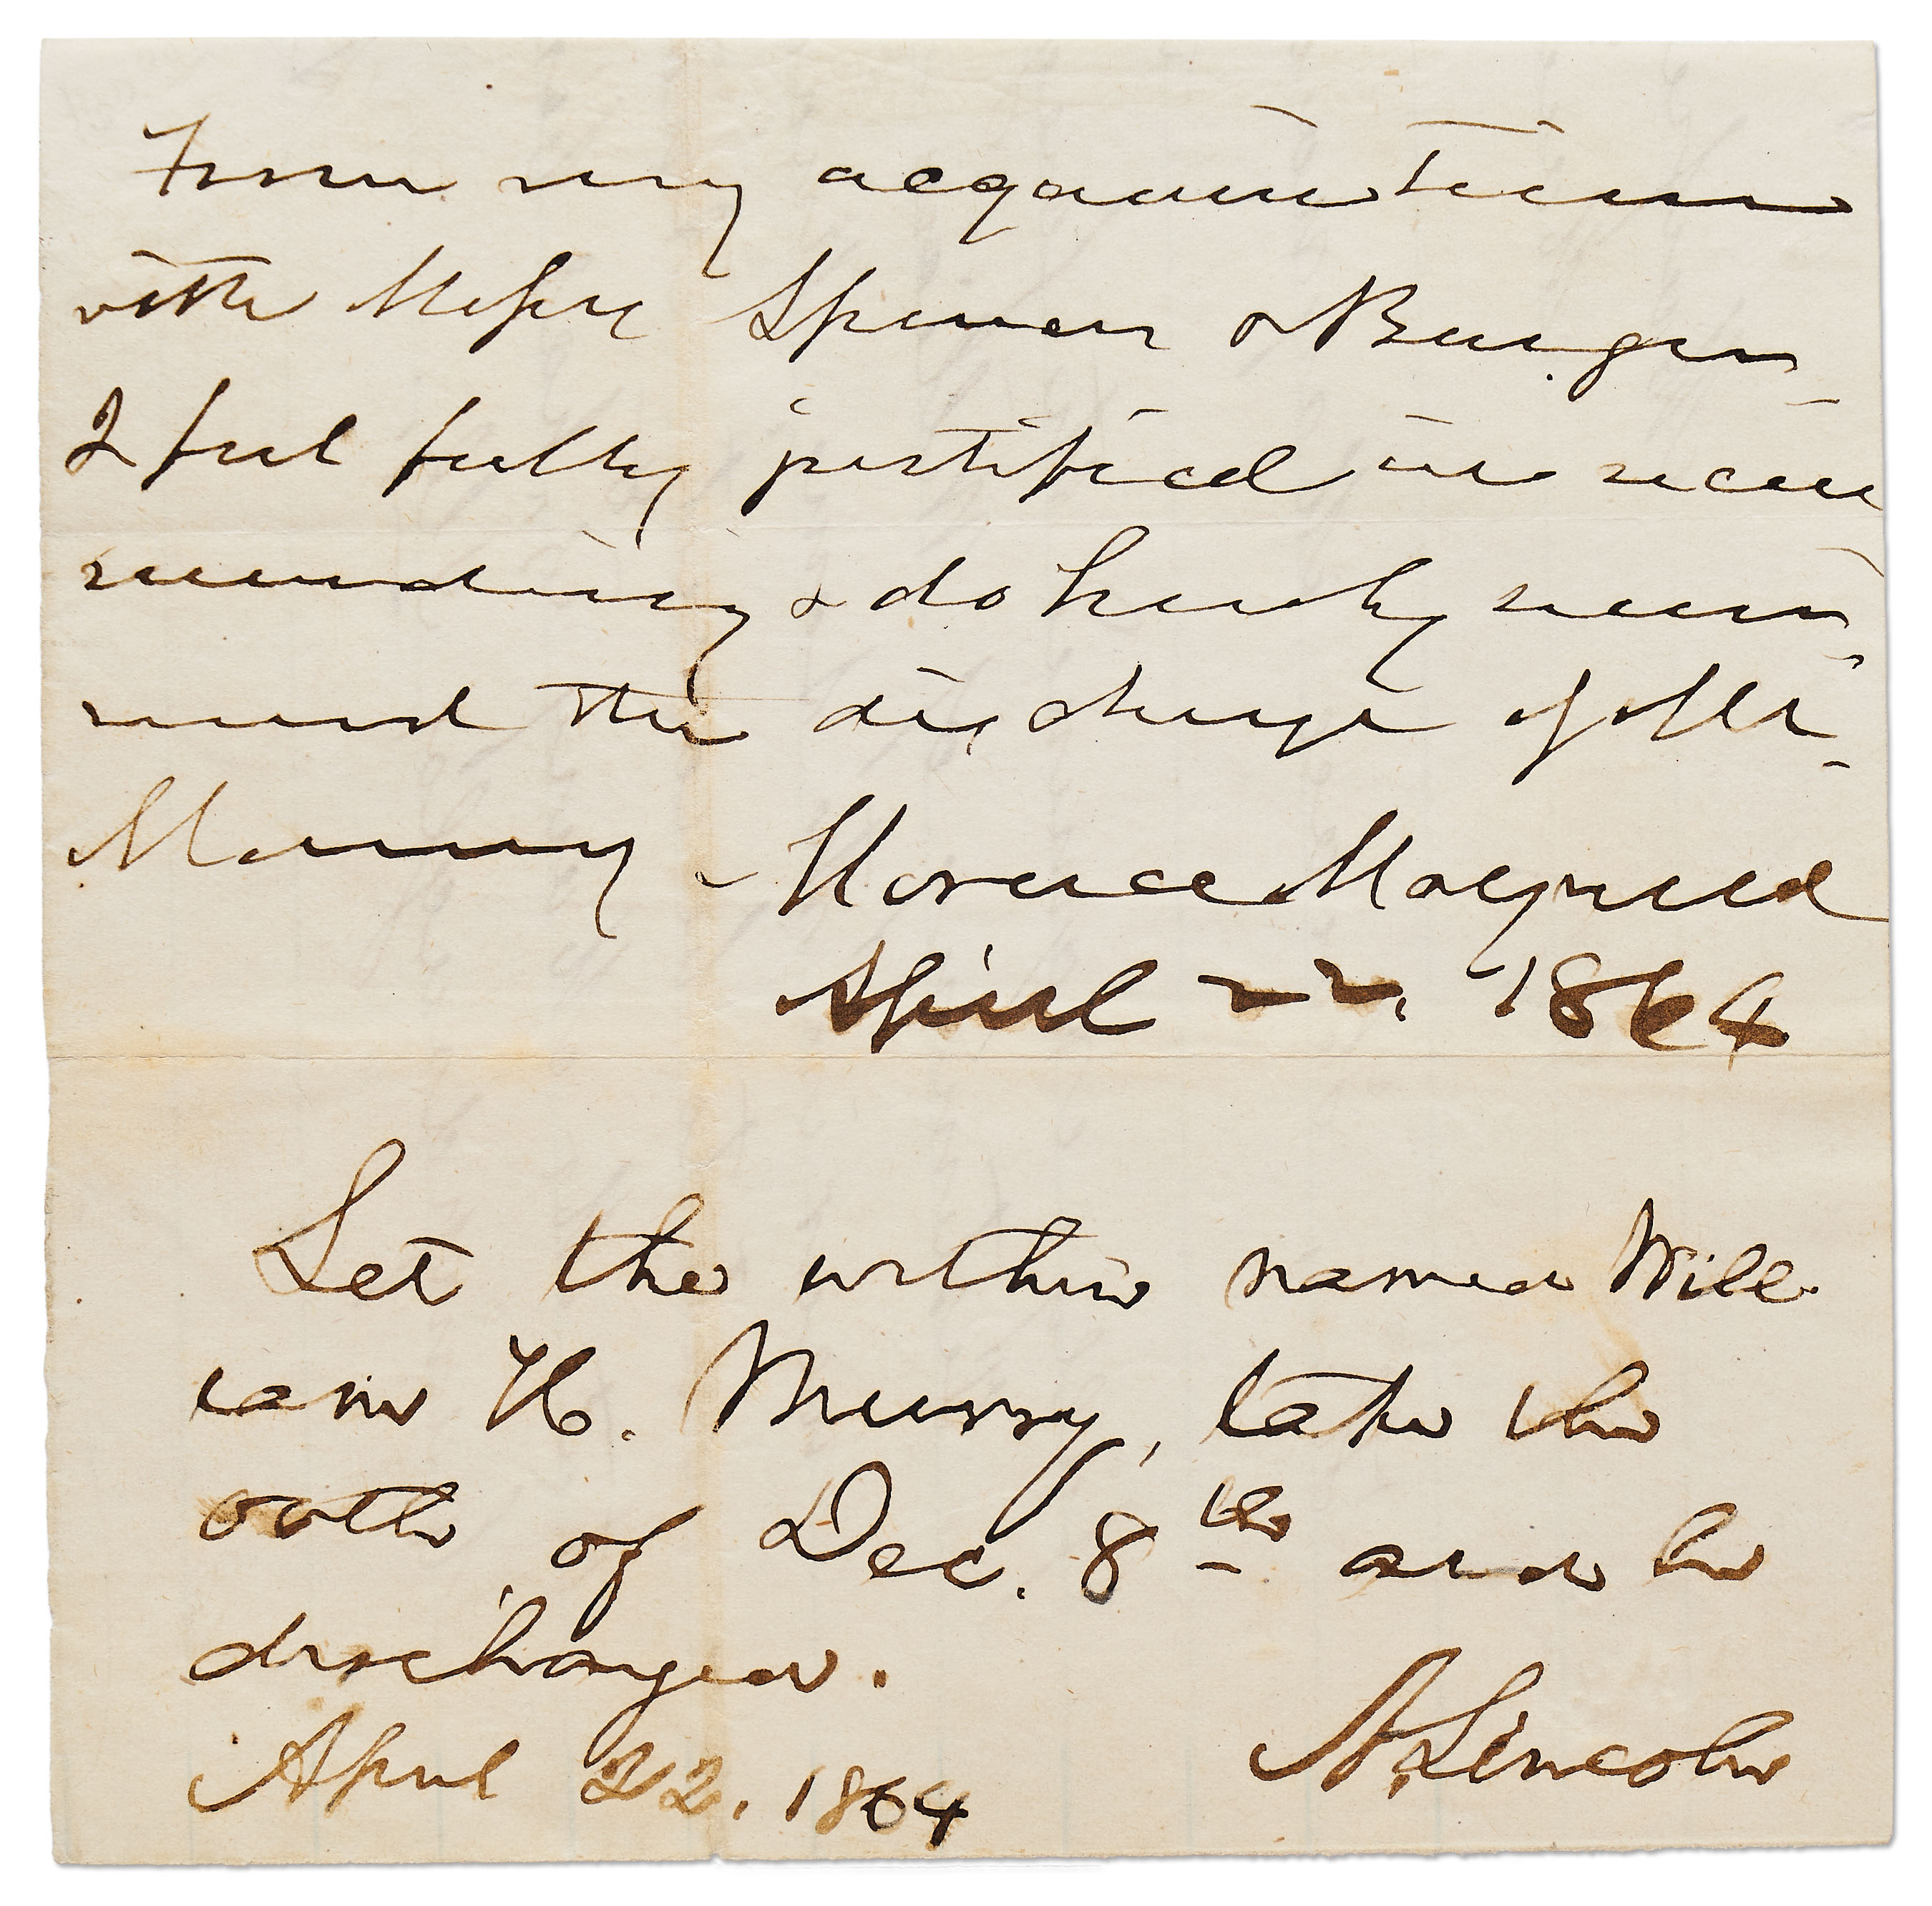 From my acquaintance
with Messrs Spencer & Burgin
I feel fully justified in recom
mending & do hereby recom
mend the discharge of Mr
Murray. Horace Maynard
April 22, 1864
Let the within named Will-
iam H. Murry, take the
oath of Dec. 8th and be
discharged.
A. Lincoln
April 22, 1864